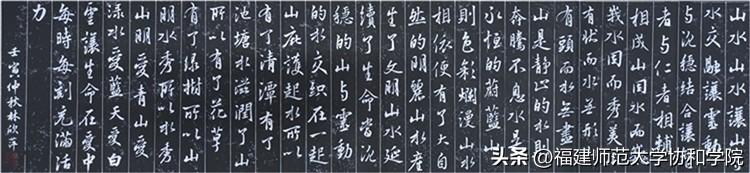 山水山水山
水交融讓靈
与沈穩结合讓
者与仁者相輔
相成山因水而
水因而秀美
有状而水無形
有頭而水無盡
山是静止的水則
奔騰不息水是
永恒的蔚蓝山
則色彩爛漫山水
相依便有了大自
然的明麗山水產
生了文明山水延
續了生命當沈
穩的山与靈動
的水交织在一起
山庇護起水所以
有了清潭有了
池塘水滋潤了山
所以有了花草
有了绿樹所以山
明水秀所以水秀
山明愛青山愛
渌水愛藍天愛白
雲讓生命在愛中
每時每刻充滿活
力
壬寅仲秋林欣
头条@福建师范大学协和学院